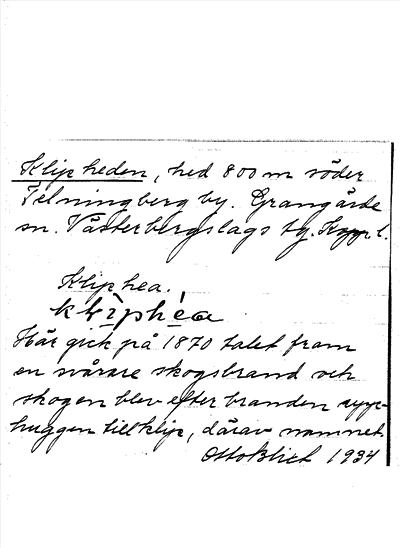 Klipheden, hed 800 m söder
Telningberg by. Grangärde
sn. Västerbergslags tg. Kopp. l.
Kliphea.
klìphéa
Här gick på 1870 talet fram
en svårare skogsbrand och
skogen blev efter branden upp-
huggen till klip, därav namnet
Otto Blixt 1934